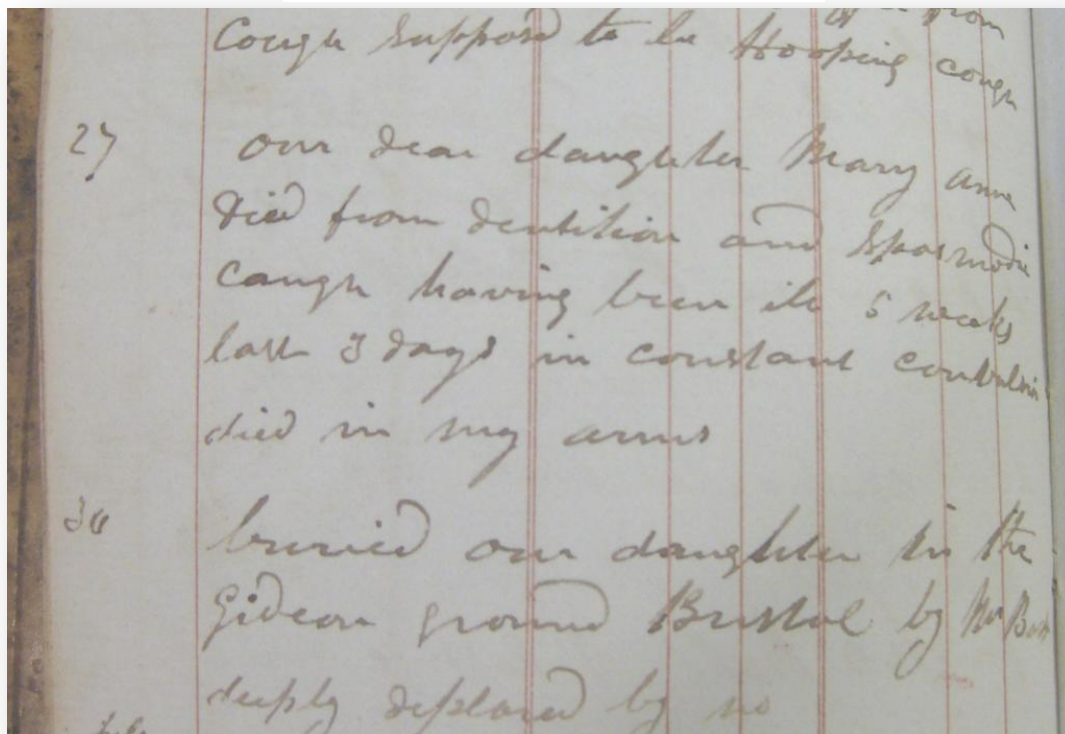 from
Cough supposed to be Hooping cough
27 our dear daughter Mary Ann
Died from dentition and spasmodic
caugh having been ill 5 weeks
last 3 days in constant convulsion
died in my arms
30 buried our daughter in the
Gideon ground Bristol by Mr
deeply deplored by us
July